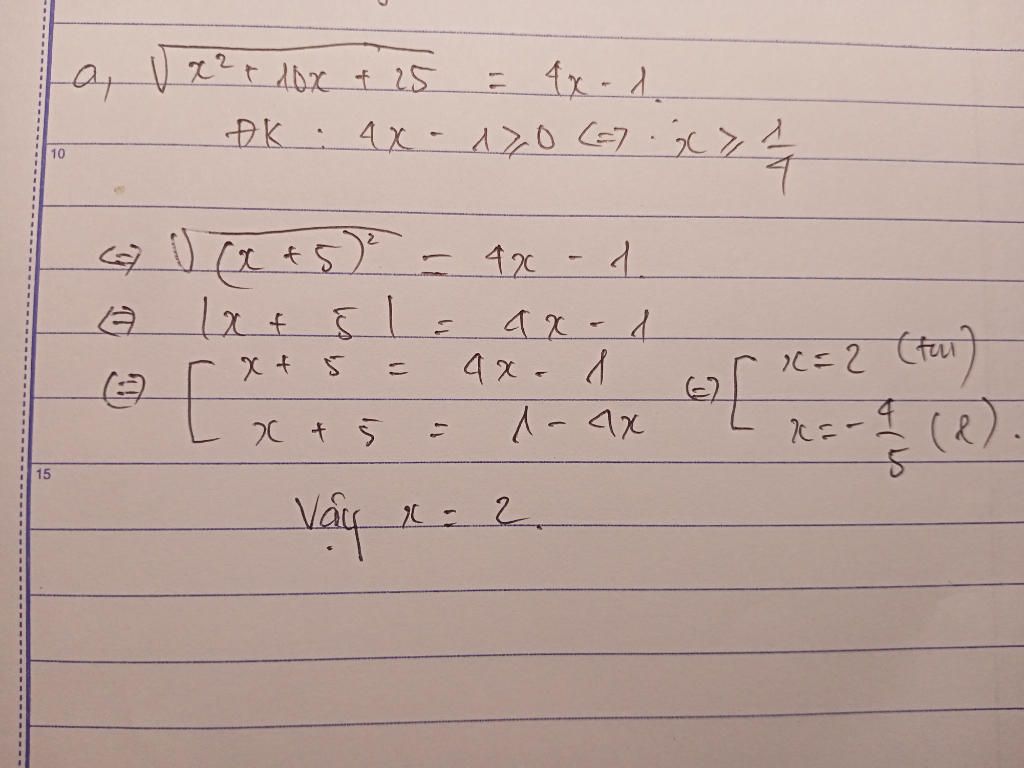 a, √(x² + 10x + 25) = 4x - 1.
ĐK : 4x - 1 ≥ 0 <=> x ≥ 1/4
10
<=> √((x + 5)²) = 4x - 1.
<=> |x + 5| = 4x - 1
<=> [ x + 5 = 4x - 1 <=> [ x = 2 (tm)
x + 5 = 1 - 4x x = -4/5 (l).
15
Vậy x = 2.